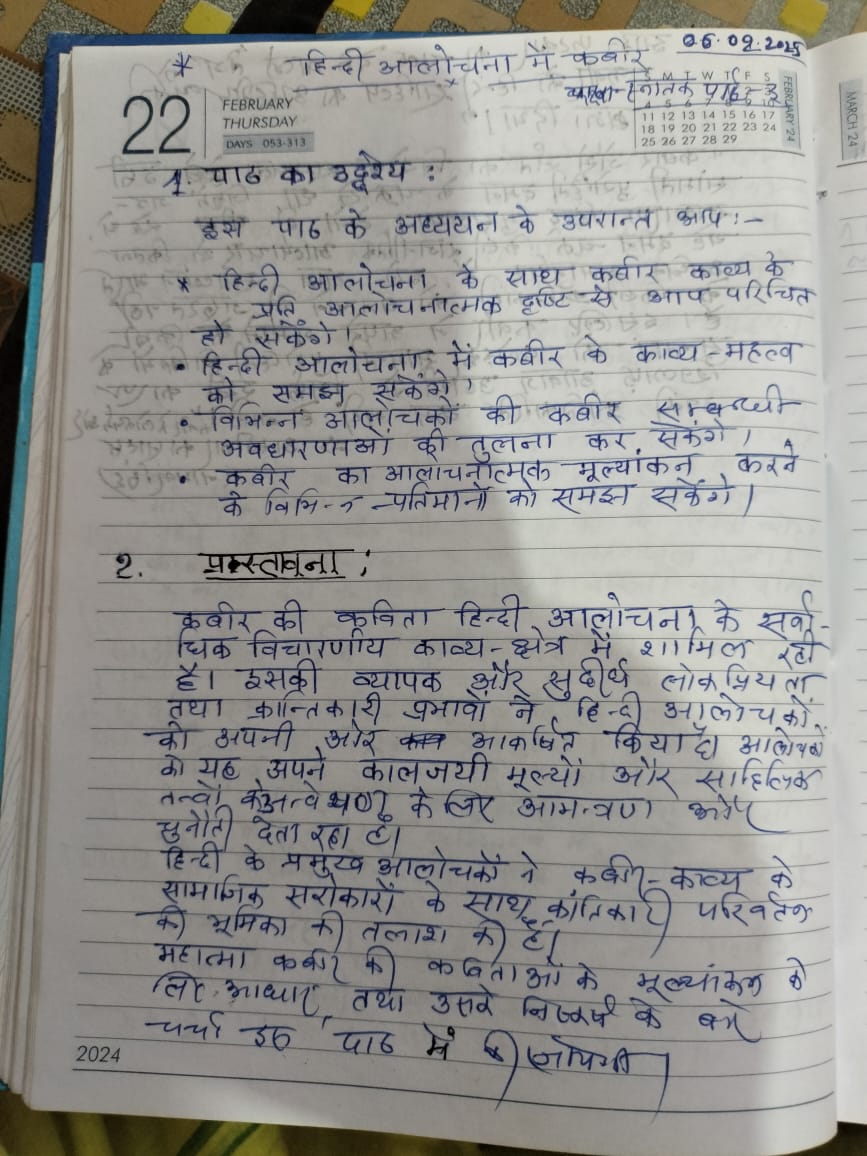 06.02.2025
* हिन्दी आलोचना में कबीर
स्नातक पाठ-3
22
FEBRUARY
THURSDAY
DAYS 053-313
S M T W T F S
4 5 6 7 8 9 10
11 12 13 14 15 16 17
18 19 20 21 22 23 24
25 26 27 28 29
FEBRUARY'24
MARCH'24
1. पाठ का उद्देश्य :
इस पाठ के अध्ययन के उपरान्त आप :-
* हिन्दी आलोचना के साथ कबीर काव्य के
प्रति आलोचनात्मक दृष्टि से आप परिचित
हो सकेंगे।
• हिन्दी आलोचना में कबीर के काव्य-महत्व
को समझ सकेंगे।
• विभिन्न आलोचकों की कबीर सम्बन्धी
अवधारणाओं की तुलना कर सकेंगे।
• कबीर का आलोचनात्मक मूल्यांकन करने
के विभिन्न प्रतिमानों को समझ सकेंगे।
2. प्रस्तावना :
कबीर की कविता हिन्दी आलोचना के सर्वा-
धिक विचारणीय काव्य-क्षेत्र में शामिल रही
है। इसकी व्यापक और सुदीर्घ लोकप्रियता
तथा क्रान्तिकारी प्रभावों ने हिन्दी आलोचकों
को अपनी ओर आकर्षित किया है। आलोचकों
को यह अपने कालजयी मूल्यों और साहित्यिक
तत्वों के अन्वेषण के लिए आमन्त्रण और
चुनौती देता रहा है।
हिन्दी के प्रमुख आलोचकों ने कबीर-काव्य के
सामाजिक सरोकारों के साथ क्रांतिकारी परिवर्तन
की भूमिका की तलाश की है।
महात्मा कबीर की कविताओं के मूल्यांकन के
लिए आधार, तथा उसके निष्कर्ष के बारे
चर्चा इस पाठ में की जायेगी
2024